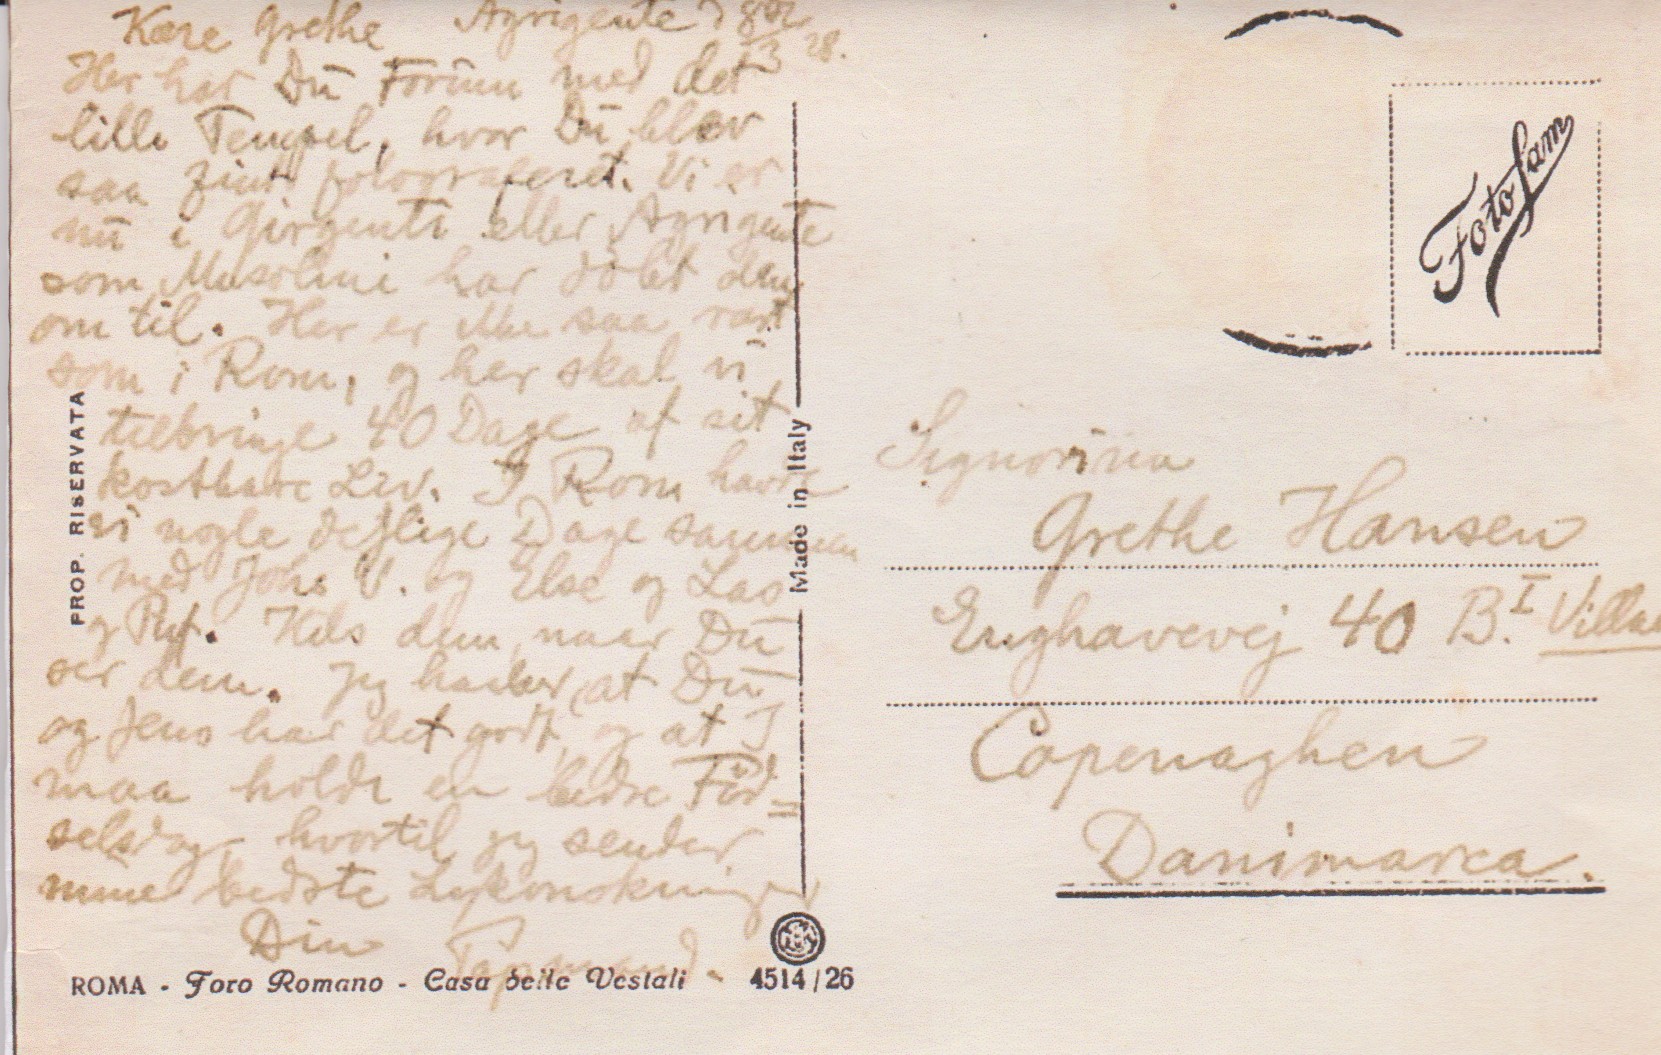 Kære Grethe Agrigente d 8/3 28.
Her har Du Forum med det
lille Tempel, hvor Du blev
saa fint fotograferet. Vi er
nu i Girgenti eller Agrigente
som Musolini har döbt dem
om til. Her er ikke saa rart
som i Rom, og her skal vi
tilbringe 40 Dage af sit
kostbare Liv. I Rom havde
vi nogle dejlige Dage sammen
med Johs V. og Else og Las
og Hils dem naar Du
ser dem. Jeg haaber, at Du
og Jens har det godt, og at I
maa holde en bedre Föd=
selsdag, hvortil jeg sender
mine bedste Lykönskninger
Din Tapmand.
PROP. RISERVATA
Made in Italy
ROMA - Foro Romano - Casa delle Vestali 4514/26
Foto Sam
Signorina
Grethe Hansen
Enghavevej 40 B.I Villa
Copenaghen
Danimarca.